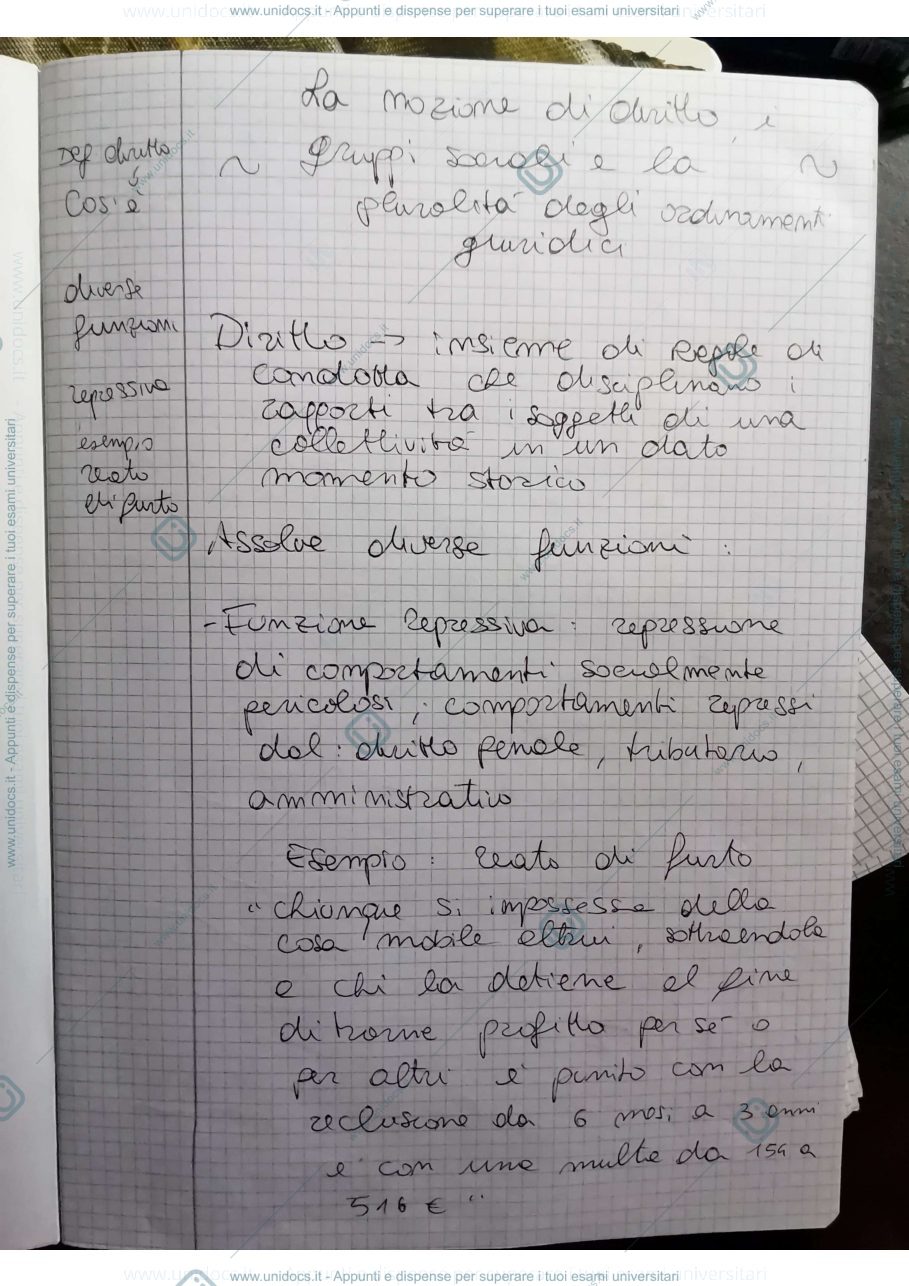 www.unidocs.it - Appunti e dispense per superare i tuoi esami universitari
La nozione di diritto, i
~ gruppi sociali e la ~
pluralità degli ordinamenti
giuridici
Def diritto
↓
Cos'è
diverse
funzioni
repressiva
esempio
reato
di furto
Diritto -> insieme di regole di
condotta che disciplinano i
rapporti tra i soggetti di una
collettività in un dato
momento storico
Assolve diverse funzioni :
- Funzione repressiva : repressione
di comportamenti socialmente
pericolosi, comportamenti repressi
dal : diritto penale, tributario,
amministrativo
Esempio : reato di furto
"chiunque si impossessa della
cosa mobile altrui, sottraendola
a chi la detiene al fine
di trarne profitto per sé o
per altri è punito con la
reclusione da 6 mesi a 3 anni
e con una multa da 154 a
516 € "
www.unidocs.it - Appunti e dispense per superare i tuoi esami universitari
www.unidocs.it - Appunti e dispense per superare i tuoi esami universitari